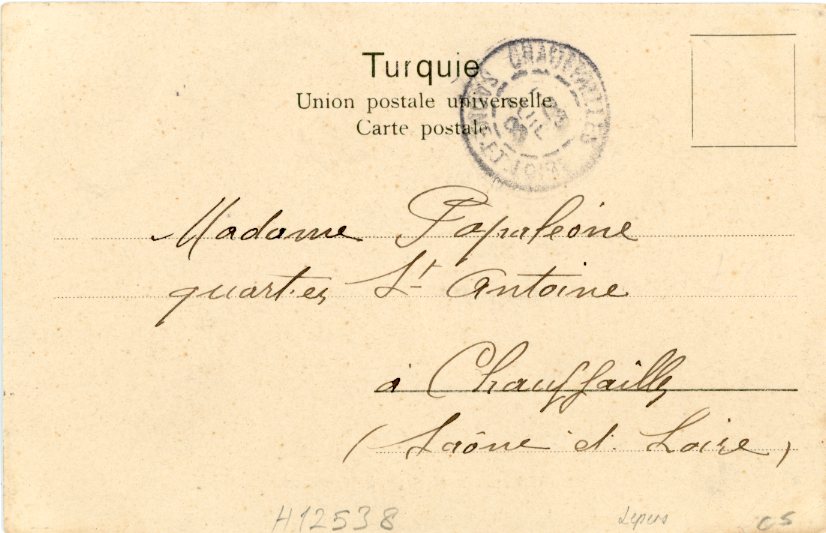 Turquie
Union postale universelle.
Carte postale
CHAUFFAILLES
SAONE-ET-LOIRE
Madame Papaléoine
quartier St Antoine
à Chauffailles
(Saône et Loire)
H12538
Lepers
CS